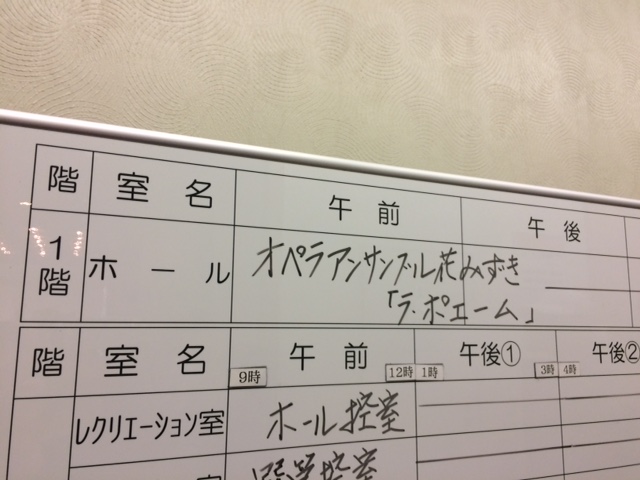 階 室名 午前 午後
1階 ホール オペラアンサンブル花みずき
「ラ・ポエーム」
階 室名 午前 午後① 午後②
9時 12時 1時 3時 4時
レクリエーション室 ホール控室
室 控室